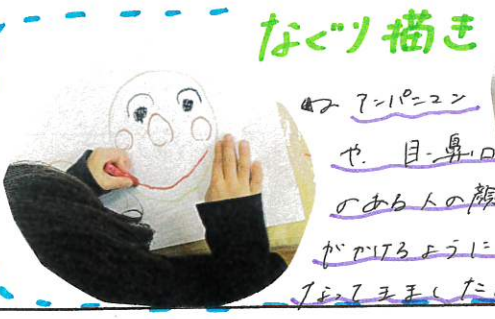 なぐり描き
アンパンマン
や、目・鼻・口
のある人の顔
がかけるように
なってきました。